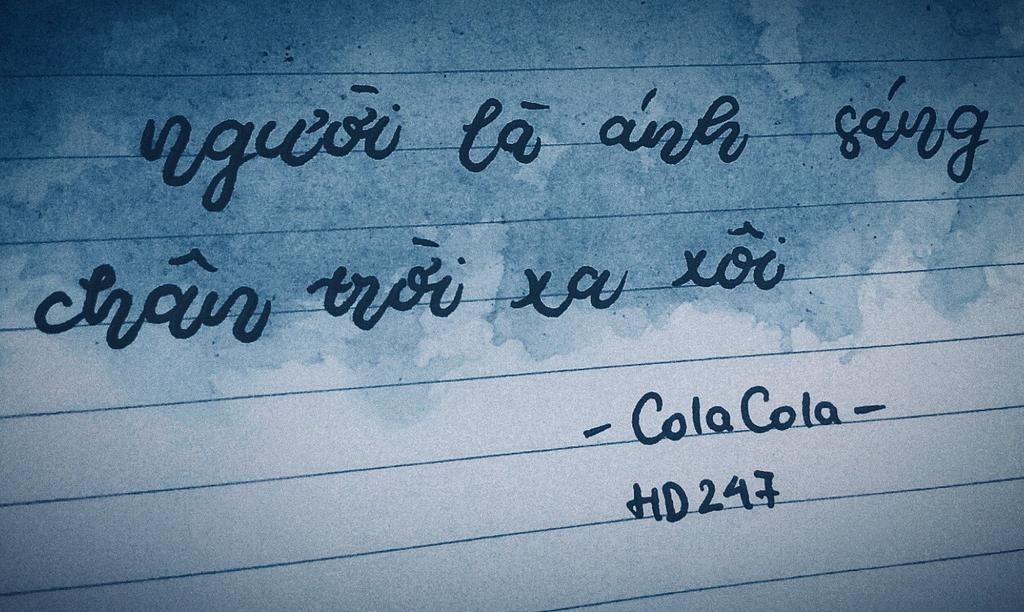 người là ánh sáng
chân trời xa xôi
- ColaCola -
HD247